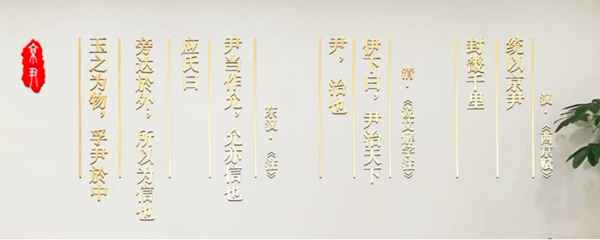 京尹
玉之为物，孚尹於中
旁达於外，所以为信也
应氏曰
尹当作允，允亦信也
东汉·《注》
尹，治也
伊下曰，尹治天下
清·《说文解字注》
封畿千里
统以京尹
汉·《西京赋》